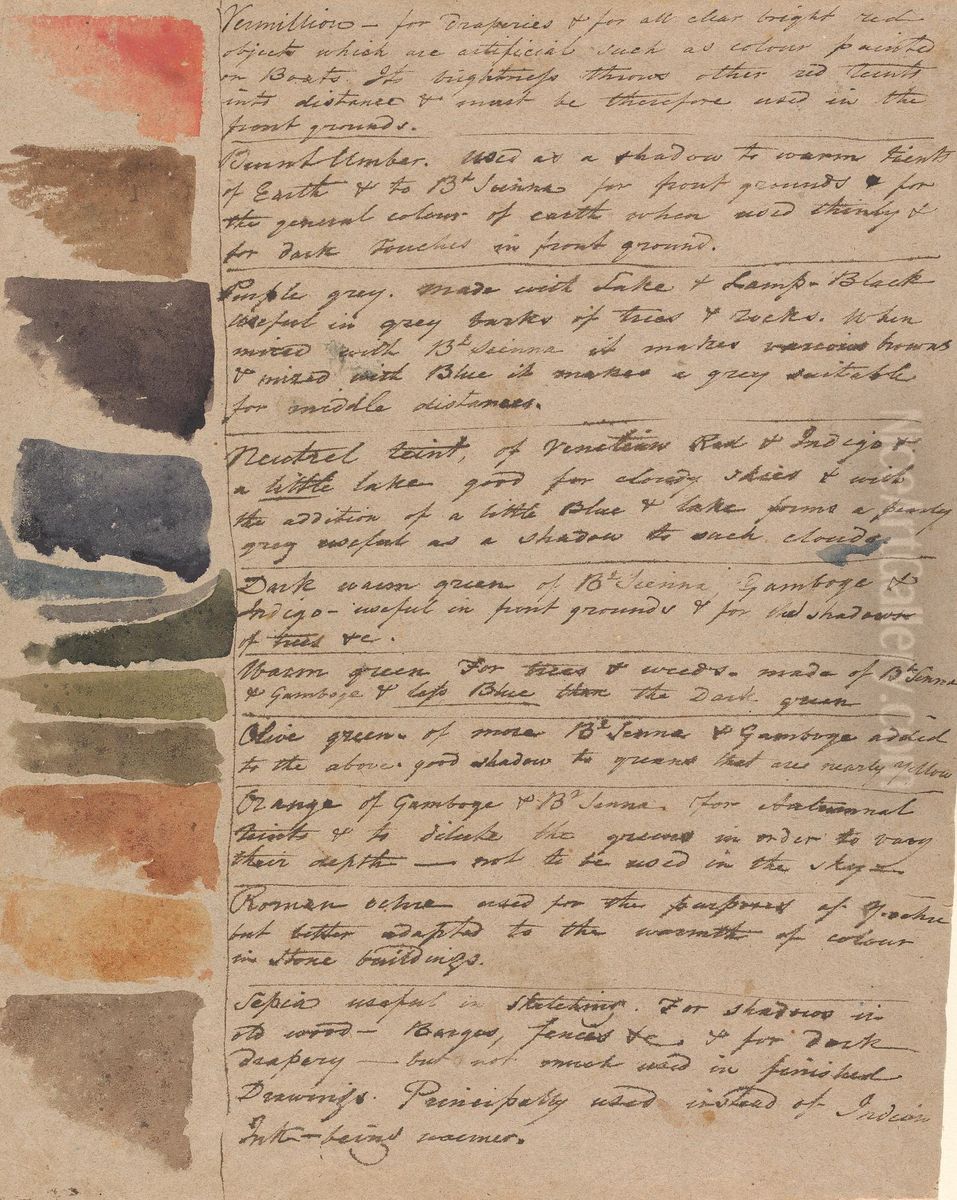 Vermillion – for Draperies & for all clear bright red
objects which are artificial such as colour painted
on Boats. Its brightness throws other red teints
into distance & must be therefore used in the
front grounds.
Burnt Umber. used as a shadow to warm tients
of Earth & to Bt Sienna for front grounds & for
the general colour of earth when used thinly &
for dark touches in front ground.
Purple grey. made with Lake & Lamp-Black
useful in grey barks of trees & rocks. When
mixed with Bt Sienna it makes various browns
& mixed with Blue it makes a grey suitable
for middle distances.
Neutral teint, of Venetian Red & Indigo &
a little lake good for cloudy skies & with
the addition of a little Blue & lake forms a pearly
grey useful as a shadow to such clouds.
Dark warm green of Bt Sienna, Gamboge &
Indigo – useful in front grounds & for the shadows
of trees &c.
Warm green For trees & weeds. made of Bt Sienna
& Gamboge & less Blue than the Dark green
Olive green. of more Bt Senna & Gamboge added
to the above. good shadow to greens that are nearly yellow
Orange of Gamboge & Bt Senna. for Autumnal
teints & to dilute the greens in order to vary
their depth – not to be used in the sky –
Roman ochre used for the purposes of Y. ochre
but better adapted to the warmth of colour
in stone buildings.
Sepia useful in sketching. For shadows in
old wood – Barges, fences &c & for dark
drapery – but not much used in finished
Drawings. Principally used instead of Indian
Ink – being warmer.